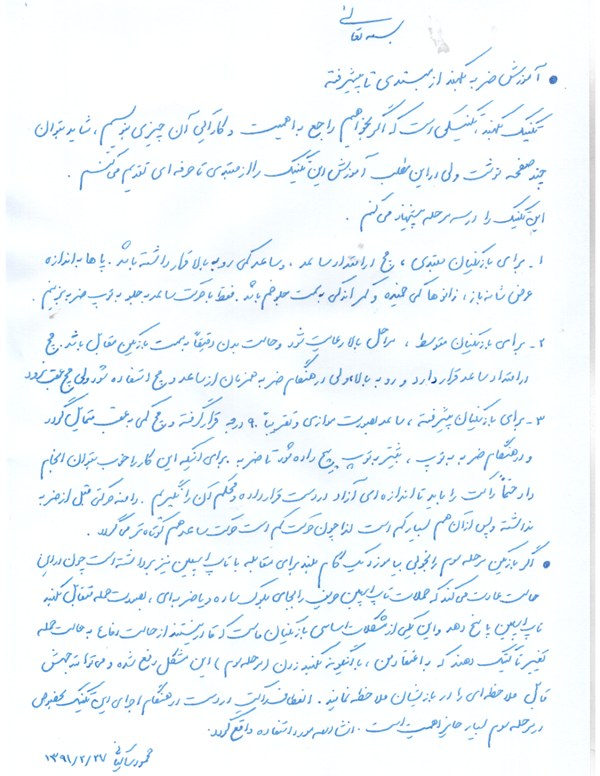 بسمه تعالی
• آموزش ضربه بکهند از مبتدی تا پیشرفته
تکنیک بکهند، تکنیکی است که اگر بخواهیم راجع به اهمیت و کارائی آن چیزی بنویسیم، شاید بتوان
چند صفحه نوشت ولی در این مطلب آموزش این تکنیک را از مبتدی تا حرفه ای تقدیم می کنم.
این تکنیک را در سه مرحله پیشنهاد می کنم.
۱- برای بازیکنان مبتدی، مچ در امتداد ساعد، و ساعد کمی رو به بالا قرار داشته باشد. پاها به اندازه
عرض شانه باز، زانوها کمی خمیده و کمر اندکی به سمت جلو خم باشد. فقط با حرکت ساعد به جلو به توپ ضربه بزنیم.
۲- برای بازیکنان متوسط، مراحل بالا رعایت شود و حالت بدن دقیقاً به سمت بازیکن مقابل باشد. مچ
در امتداد ساعد قرار دارد و رو به بالا ولی در هنگام ضربه همزمان از ساعد و مچ استفاده شود ولی مچ عقب نرود
۳- برای بازیکنان پیشرفته، ساعد بصورت موازی و تقریباً ۹۰ درجه قرار گرفته و مچ کمی به عقب متمایل گردد
و در هنگام ضربه به توپ، بیشتر به توپ پیچ داده شود تا ضربه. برای آنکه این کار را خوب بتوان انجام
داد حتماً راکت را باید تا اندازه ای آزاد در دست قرار داده و محکم آن را نگیریم. دامنه حرکتی قبل از ضربه
نداشته و پس از آن هم بسیار کم است لذا چون حرکت کم است حرکت ساعد هم کوتاه تر می گردد.
• اگر بازیکن مرحله سوم را بخوبی بیاموزد یک گام بلند برای مقابله با تاپ اسپین نیز برداشته است چون در این
حالت عادت می کند که حملات تاپ اسپین حریف را بجای بلوک ساده و یا ضربه ای، بصورت حمله متقابل بکهند
تاپ اسپین پاسخ دهد و این یکی از مشکلات اساسی بازیکنان ماست که قادر نیستند از حالت دفاع به حالت حمله
تغییر تاکتیک دهند که به اعتقاد من، با اینگونه بکهند زدن (مرحله سوم) این مشکل رفع شده و می توانند جهش
قابل ملاحظه ای را در بازیشان ملاحظه نمایند. انعطاف راکت در دست در هنگام اجرای این تکنیک بخصوص
در مرحله سوم بسیار حائز اهمیت است. انشاءالله مورد استفاده واقع گردد.
محمود
۱۳۹۱/۲/۲۷